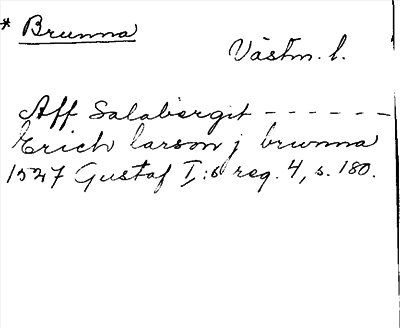 * Brunna
Västm. l.
Aff Salabergit ------
Erich larson j brunna
1527 Gustaf I:s reg. 4, s. 180.